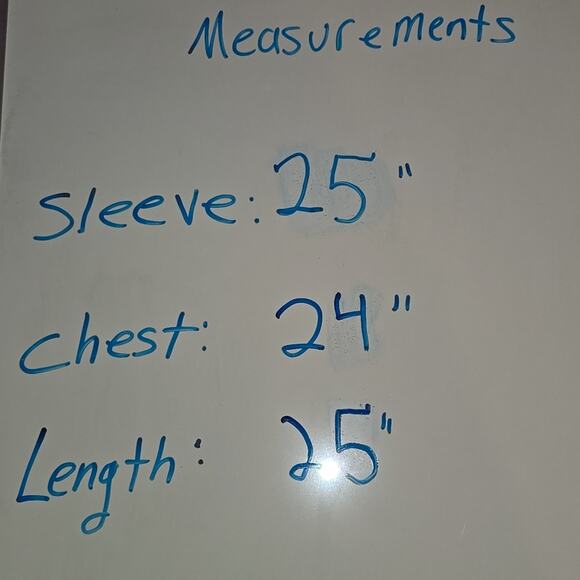 Measurements
Sleeve: 25"
Chest: 24"
Length: 25"